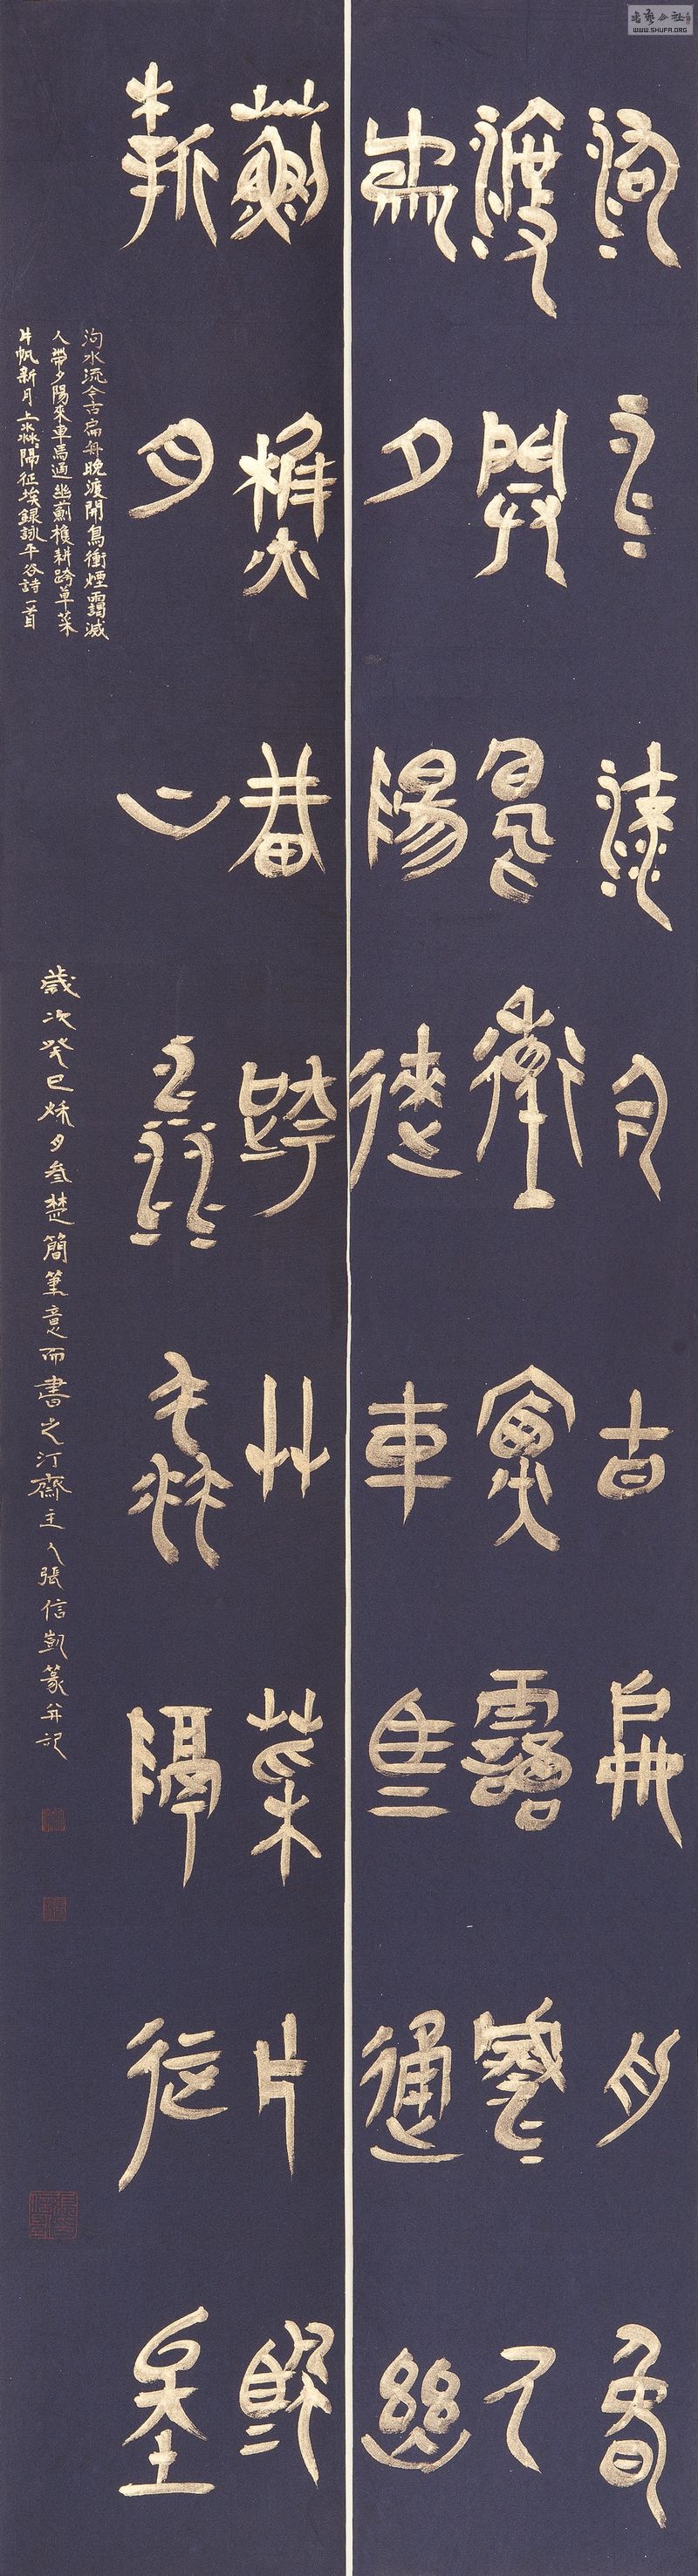 泃水流今古扁舟晚
渡開鳥衝煙靄滅人
帶夕陽來車馬通幽
薊樵耕跨草萊片帆
新月上淼淼隔征埃
泃水流今古扁舟晚渡開鳥衝煙靄滅
人帶夕陽來車馬通幽薊樵耕跨草萊
片帆新月上淼淼隔征埃錄詠平谷詩一首
歲次癸巳秌月參楚簡筆意而書之汀齋主人張信凱篆并記
WWW.SHUFA.ORG